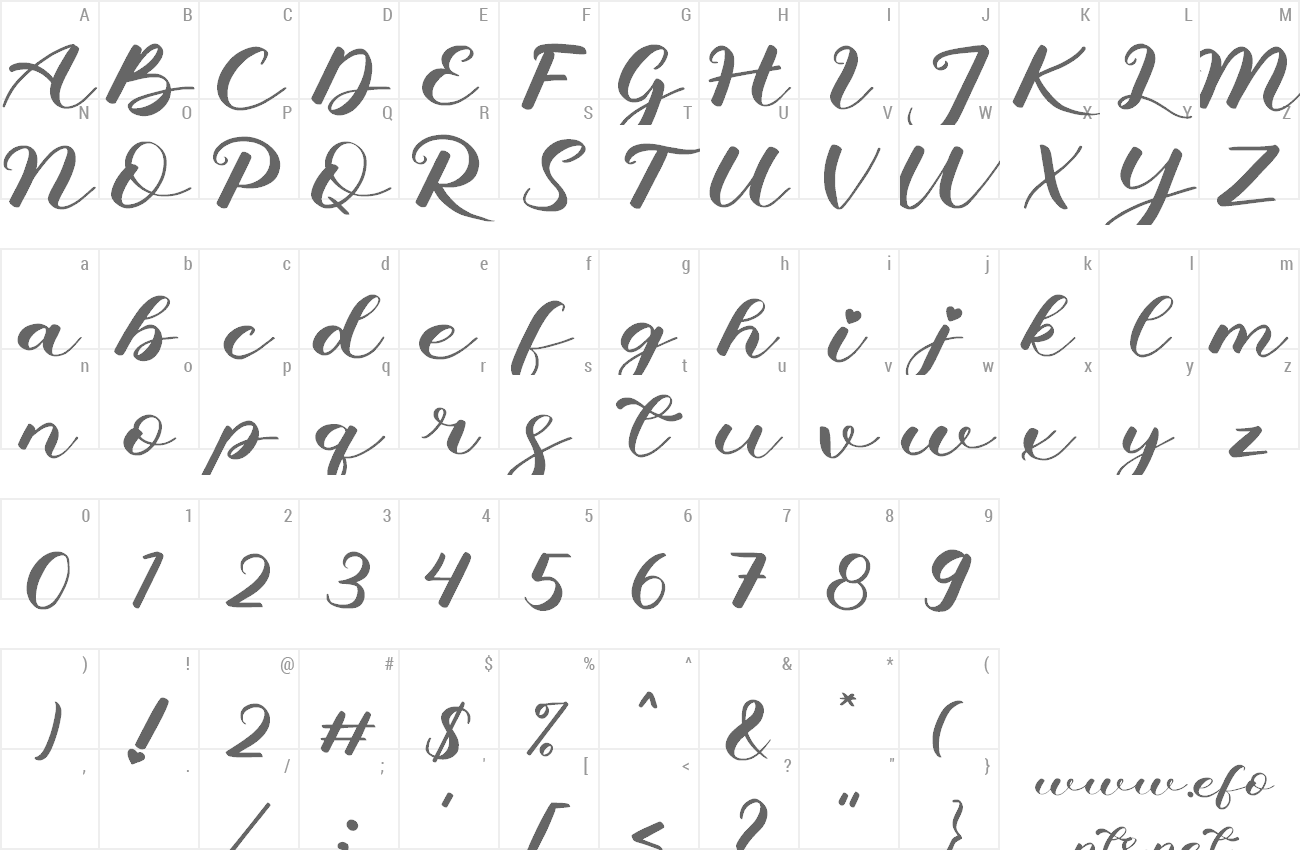 A B C D E F G H I J K L M
A B C D E F G H I J K L M
N O P Q R S T U V W X Y Z
N O P Q R S T U V W X Y Z
a b c d e f g h i j k l m
a b c d e f g h i j k l m
n o p q r s t u v w x y z
n o p q r s t u v w x y z
0 1 2 3 4 5 6 7 8 9
0 1 2 3 4 5 6 7 8 9
) ! @ # $ % ^ & * (
) ! 2 # $ % ^ & * (
, . / ; ' [ < ? " }
/ ; ' [ < ? " }
www.efo
nts.net